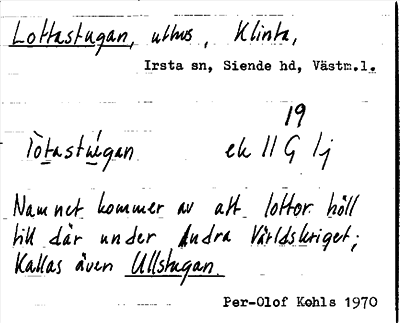 Lottastugan, uthus, Klinta,
Irsta sn, Siende hd, Västm.l.
19
Tòtastu̇gan ek 11 G lj
Namnet kommer av att lottor höll
till där under Andra Världskriget;
Kallas även Ullstugan.
Per-Olof Kohls 1970